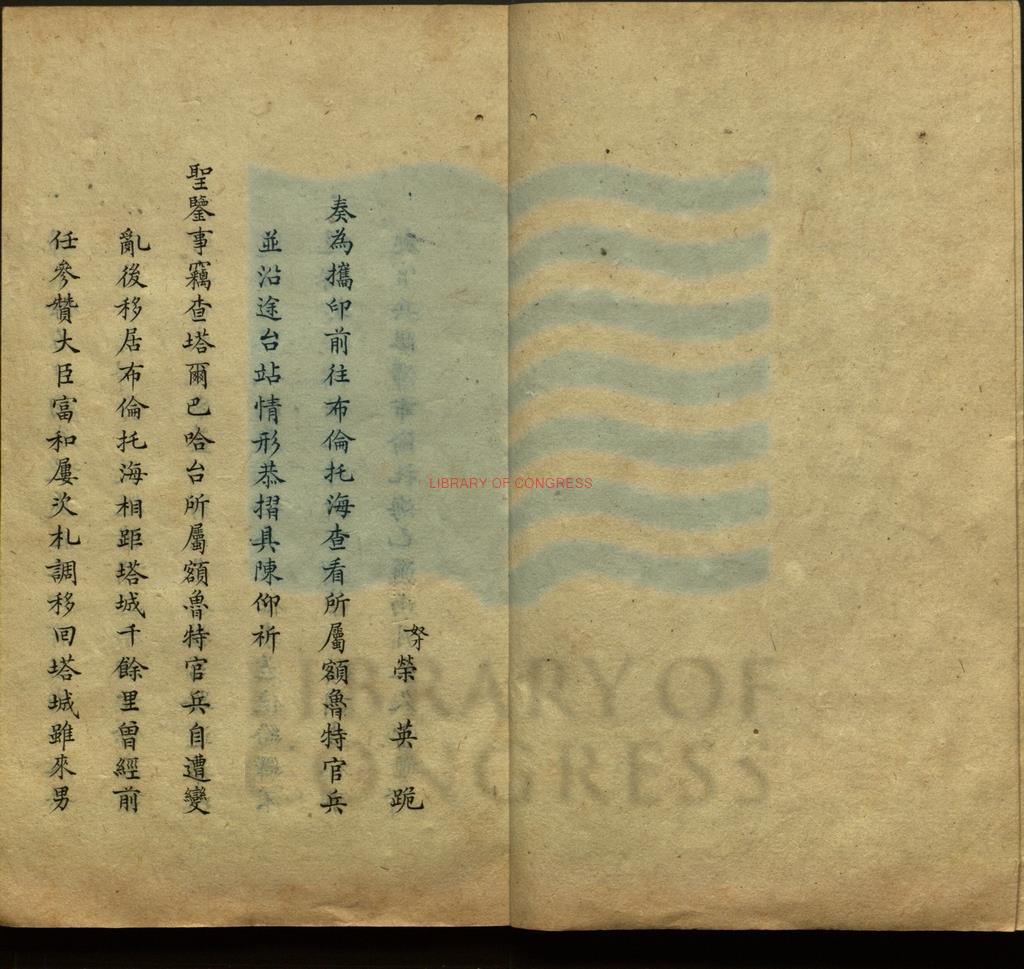 奴才榮英跪
奏為攜印前往布倫托海查看所屬額魯特官兵
並沿途台站情形恭摺具陳仰祈
聖鑒事竊查塔爾巴哈台所屬額魯特官兵自遭變
亂後移居布倫托海相距塔城千餘里曾經前
任參贊大臣富和屢次札調移回塔城雖來男
LIBRARY OF CONGRESS
LIBRARY OF
CONGRESS